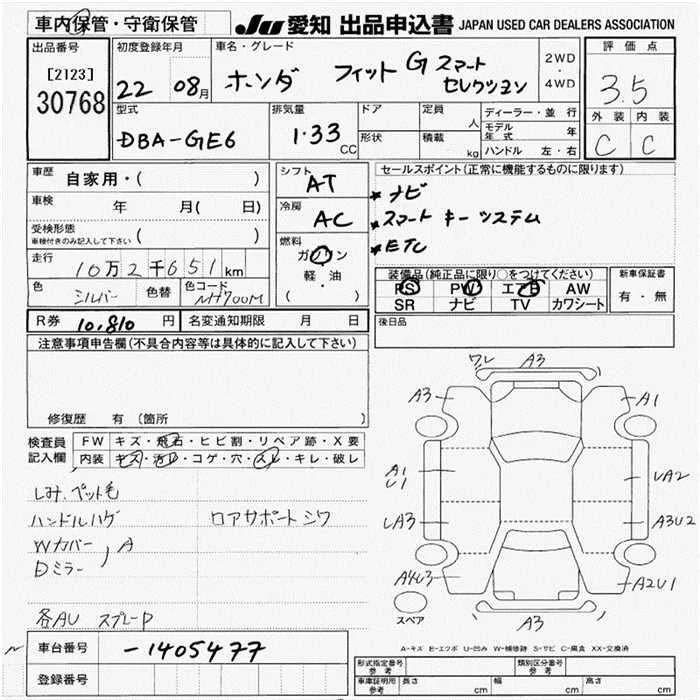 車内保管・守衛保管
JU 愛知 出品申込書 JAPAN USED CAR DEALERS ASSOCIATION
出品番号
[2123]
30768
初度登録年月
22 08月
車名・グレード
ホンダ フィット G スマート
セレクション
2WD
・
4WD
評価点
3.5
外装 内装
C C
型式
DBA-GE6
排気量
1.33 CC
ドア
形状
定員
人
積載
kg
ディーラー・並行
モデル年式 年
ハンドル 左・右
車歴 自家用・( )
車検 年 月( 日)
受検形態
車検付きのみ記入して下さい ( )
走行 10万2千651km
色 シルバー 色替 色コード NH700M
シフト AT
冷房 AC
燃料
ガソリン
軽・油
( ・ )
セールスポイント(正常に機能するものに限ります)
★ ナビ
★ スマート キー システム
★ ETC
装備品(純正品に限り○をつけてください)
PS PW エアB AW
SR ナビ TV カワシート
新車保証書
有・無
R券 10,810 円
名変通知期限 月 日
後日品
注意事項申告欄(不具合内容等は具体的に記入して下さい)
修復歴 有 (箇所 )
検査員
記入欄
FW キズ・飛石・ヒビ割・リペア跡・X要
内装 キズ・汚れ・コゲ・穴・スレ・キレ・破レ
しみ、ペット毛
ハンドルハゲ ロアサポートシワ
Wカバー
Dミラー , A
各AU スプレーP
ワレ A3
A3 A1
A1
U1
UA2
UA3 A3U2
A4U3 A2U1
A3
スペア
A-キズ E-エクボ U-凹み W-補修跡 S-サビ C-腐食 XX-交換済
車台番号 -1405477
登録番号
型式指定番号
参考
類別区分番号
参考
車庫証明用
参考
長さ cm 幅 cm 高さ cm